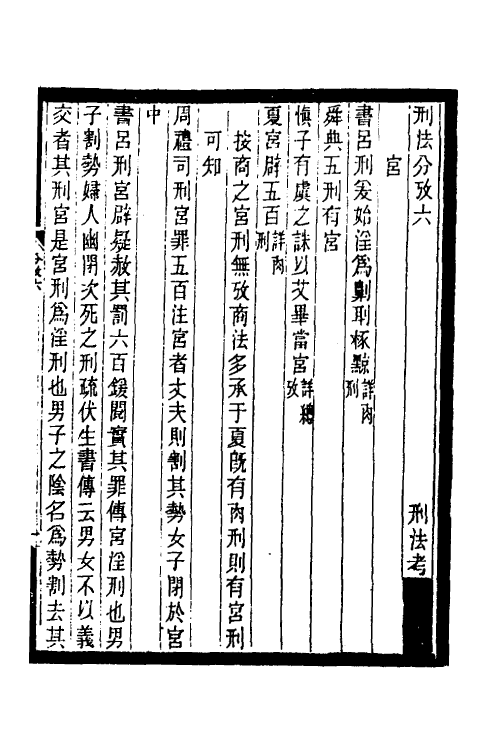 刑法分攷六　刑法考
宮
書呂刑爰始淫爲劓刵椓黥詳肉刑
舜典五刑有宮
愼子有虞之誅以艾畢當宮詳總攷
夏宮辟五百詳肉刑
按商之宮刑無攷商法多承于夏旣有肉刑則有宮刑
可知
周禮司刑宮罪五百注宮者丈夫則割其勢女子閉於宮
中
書呂刑宮辟疑赦其罰六百鍰閱實其罪傳宮淫刑也男
子割勢婦人幽閉次死之刑疏伏生書傳云男女不以義
交者其刑宮是宮刑爲淫刑也男子之陰名爲勢割去其
分攷六